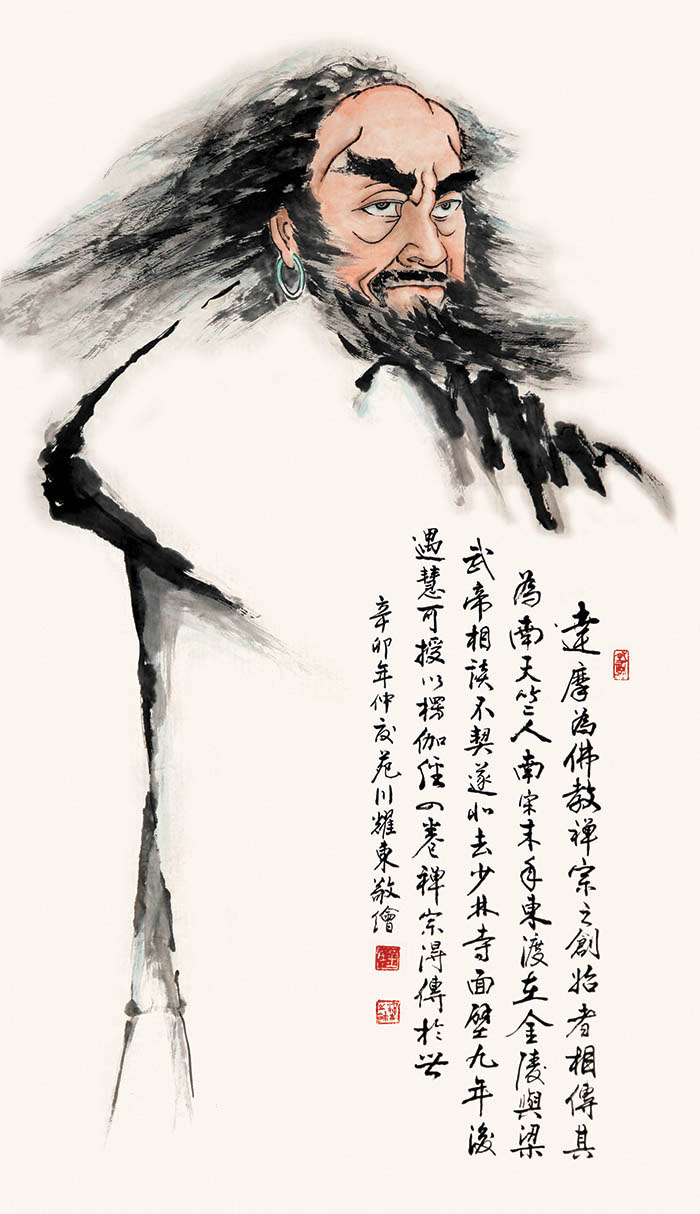 達摩為佛教禪宗之創始者相傳其
為南天竺人南宋末年東渡在金陵與梁
武帝相談不契遂北去少林寺面壁九年後
遇慧可授以楞伽經四卷禪宗得傳於世
辛卯年仲夏苑川耀東敬繪